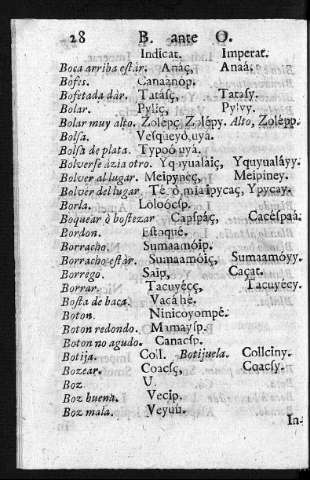 28 B. ante O.
Indicat. Imperat.
Boca arriba estàr. Anàç, Anaà.
Bofes. Canaànòp.
Bofetada dàr. Tatàſç, Tataſy.
Bolar. Pyliç, Pylvy.
Bolar muy alto. Zolèpç, Zolèpy. Alto, Zolèpp.
Bolſa. Veſqueyò, uyà.
Bolſa de plata. Typoò, uyà.
Bolverſe àzia otro. Yquyualàiç, Yquyualàyy.
Bolver al lugar. Meipyneç, Meipiney.
Bolvèr del lugar. Tè, ò, mia ipycaç, Ypycay.
Borla. Loloòcſp.
Boquear ò bostezar Capſpàç, Cacéſpaà.
Bordon. Estoquè.
Borracho. Sumaamòip.
Borracho estàr. Sumaamòiç, Sumaamòyy.
Borrego. Saip, Caçat.
Borrar. Tacuyècç, Tacuyecy.
Bosta de baca. Vacà hè.
Boton. Ninicoyompè.
Boton redondo. Mamayſp.
Boton no agudo. Canacſp.
Botija. Coll. Botijuela. Collciny.
Bozear. Coacſç, Coacſy.
Boz U.
Boz buena. Vecip.
Boz mala. Veyuù.
In-